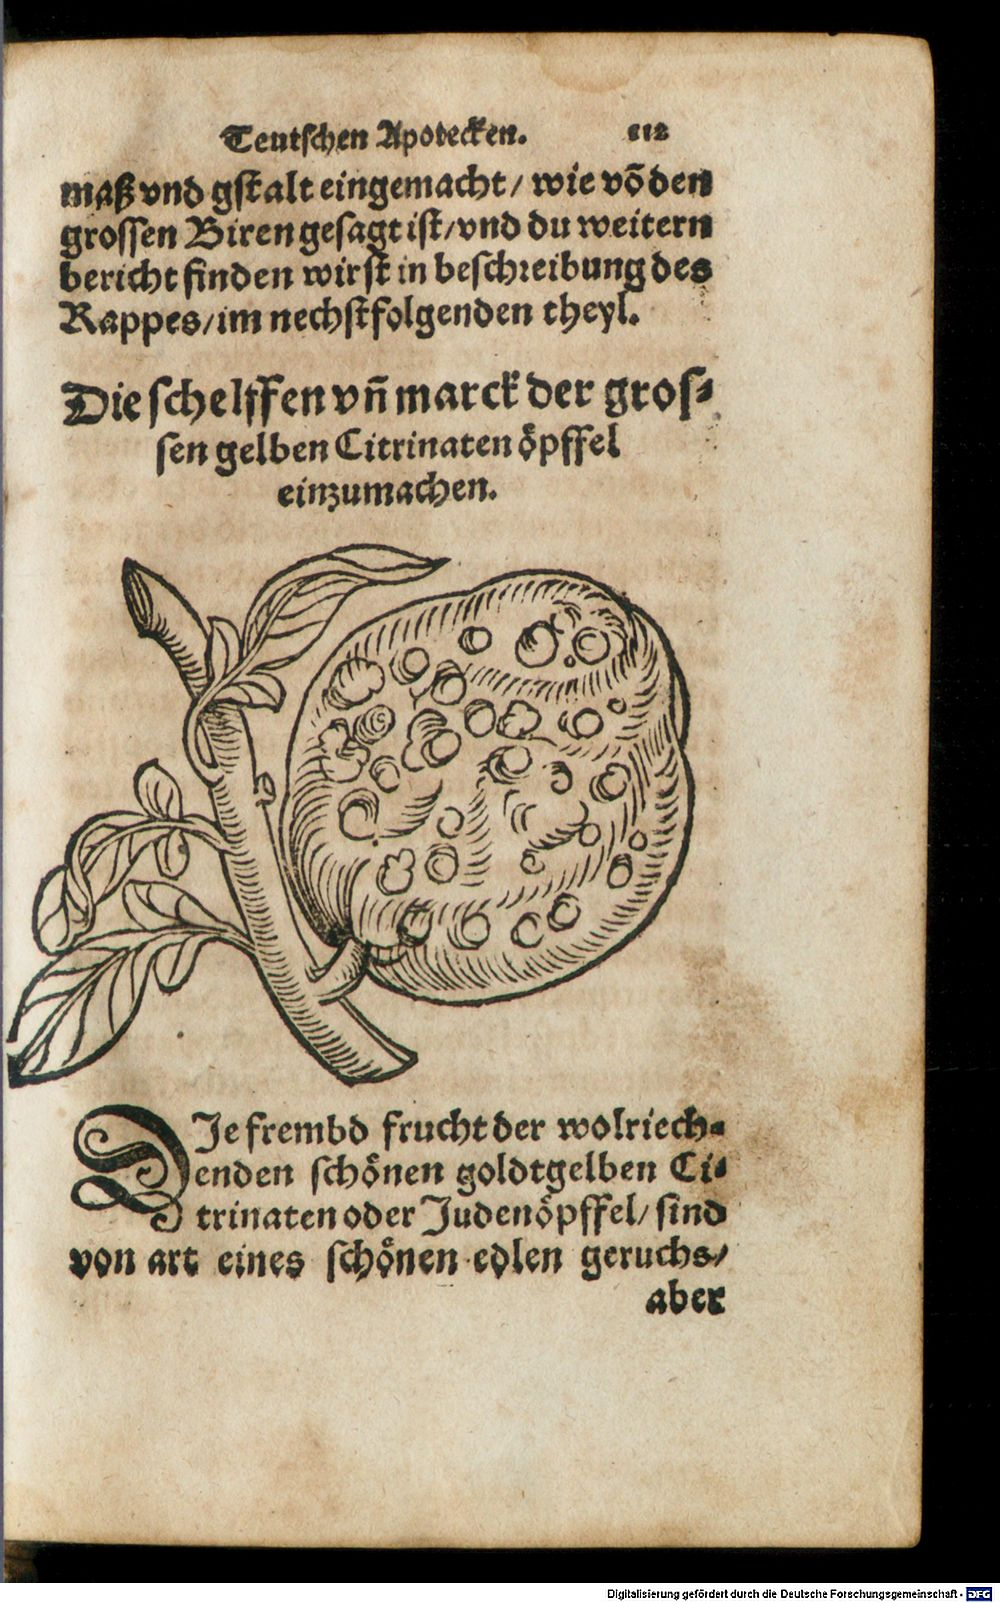 Teutschen Apotecken. 112
maß vnd gstalt eingemacht / wie võ den
grossen Biren gesagt ist / vnd du weitern
bericht finden wirst in beschreibung des
Rappes / im nechstfolgenden theyl.
Die schelffen vñ marck der gros⸗
sen gelben Citrinaten öpffel
einzumachen.
DIe frembd frucht der wolriech⸗
enden schönen goldtgelben Ci⸗
trinaten oder Judenöpffel / sind
von art eines schönen edlen geruchs /
aber
Digitalisierung gefördert durch die Deutsche Forschungsgemeinschaft - DFG